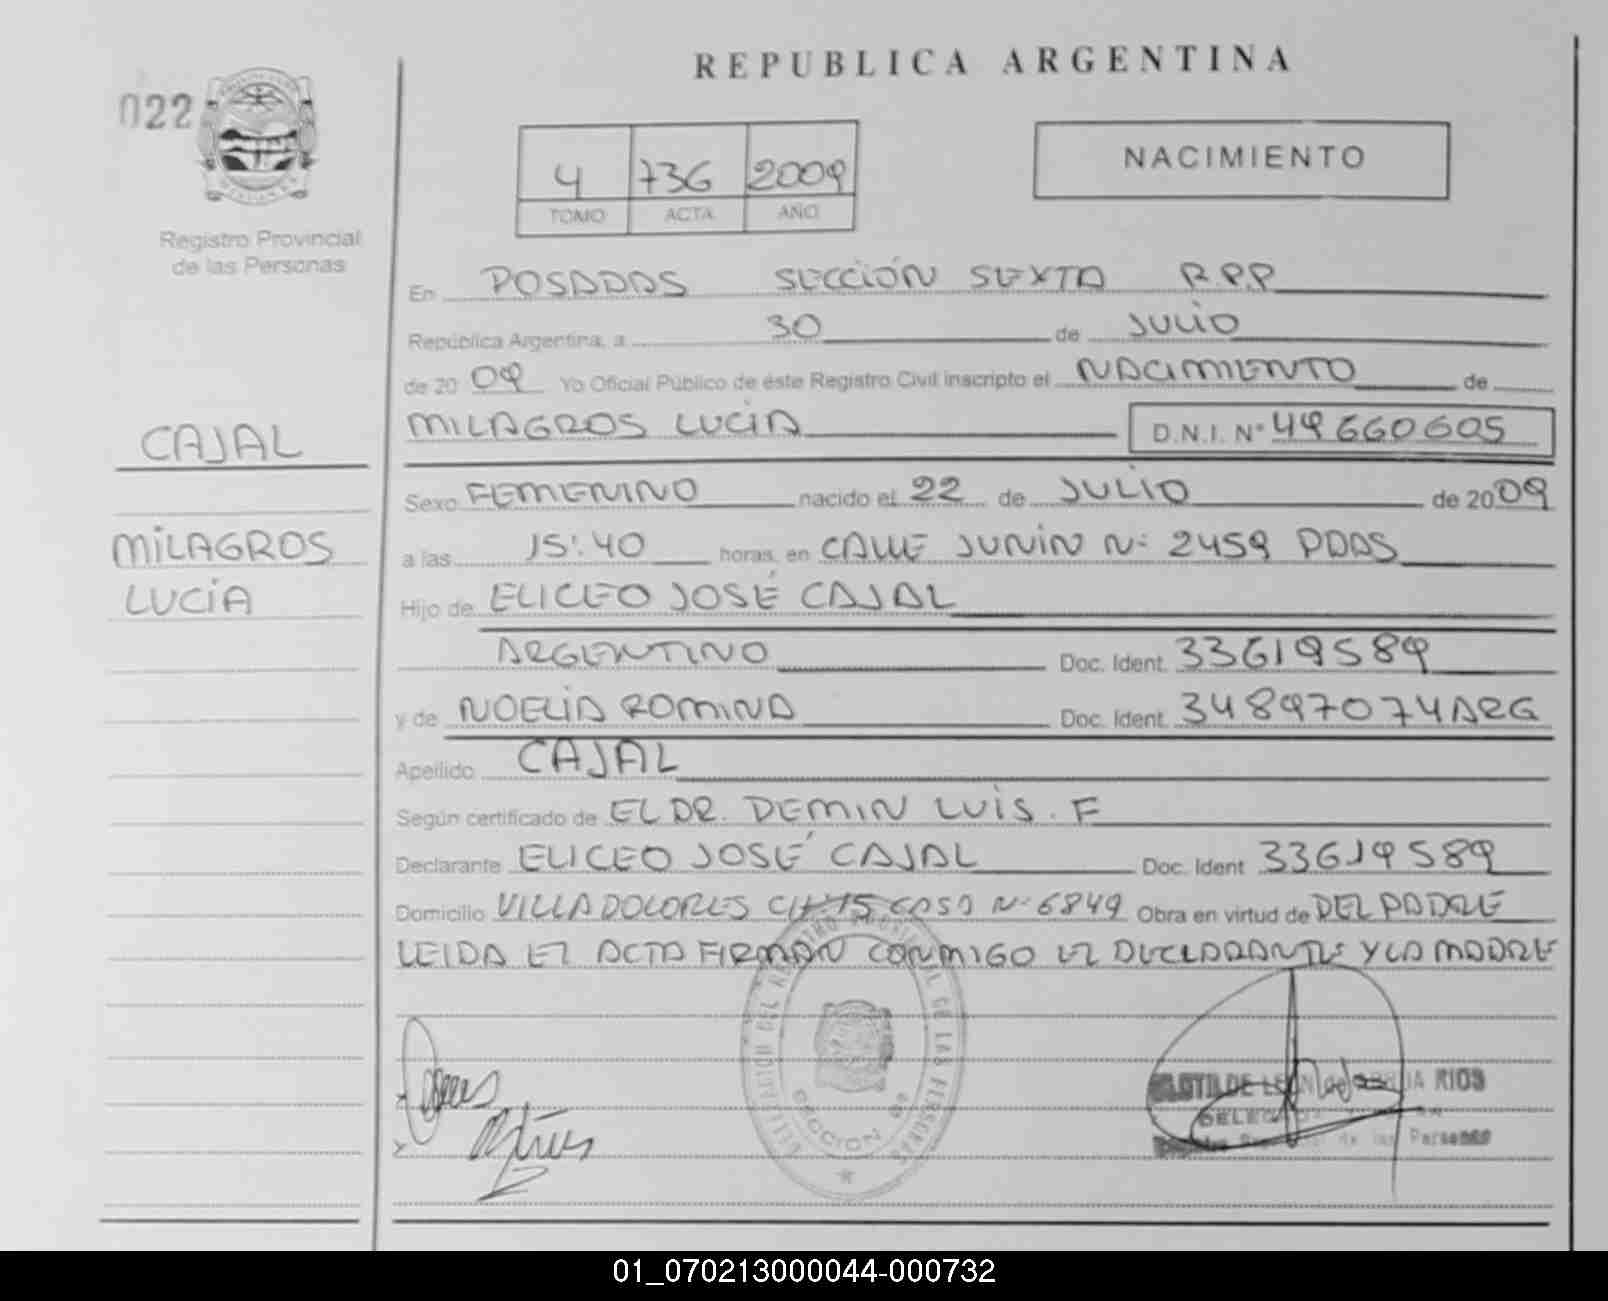 REPUBLICA ARGENTINA
022
NACIMIENTO
4 736 2009
TOMO ACTA AÑO
Registro Provincial
de las Personas
En POSADAS SECCIÓN SEXTA R.P.P
República Argentina, a 30 de JULIO
de 20 09 Yo Oficial Público de éste Registro Civil inscripto el NACIMIENTO de
MILAGROS LUCIA D.N.I. N° 49660605
CAJAL
Sexo FEMENINO nacido el 22 de JULIO de 20 09
MILAGROS
a las 15:40 horas, en CALLE JUNIN N: 2459 PDAS
LUCIA
Hijo de ELICEO JOSÉ CAJAL
ARGENTINO Doc. Ident. 33619589
y de NOELIA ROMINA Doc. Ident. 34897074 ARG
Apellido CAJAL
Según certificado de EL DR. DEMIN LUIS. F
Declarante ELICEO JOSÉ CAJAL Doc. Ident 33619589
Domicilio VILLA DOLORES CH:15 CASA N: 6849 Obra en virtud de DEL PADRE
LEIDA EL ACTA FIRMAN CONMIGO EL DECLARANTE Y LA MADRE
DELEGACION DEL REGISTRO PROVINCIAL DE LAS PERSONAS
SECCION 6ª
CLOTILDE LEON de RIOS
de las Personas
01_070213000044-000732